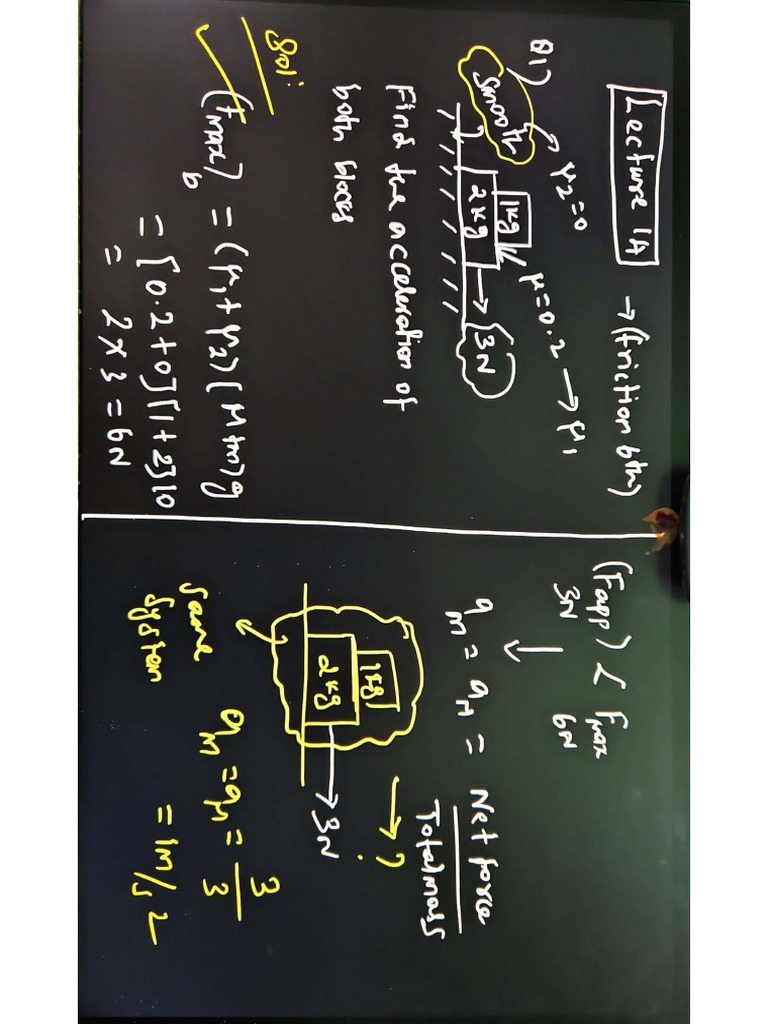 Lecture 14 → (friction btn)
Q1) μ2=0
smooth
1kg
μ=0.2 → μ1
2kg → 3N
Find the acceleration of
both blocks
Sol:
(Fmax)b = (μ1+μ2)(M+m)g
= [0.2+0][1+2]10
= 2×3 = 6N
(Fapp) < Fmax
3N 6N
↓
am = aM = Net force
Total mass
→ ?
1kg
2kg → 3N
Same
System
am = aM = 3
3
= 1m/s2